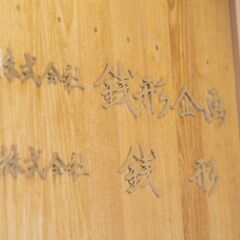 株式会社 銭形企画
株式会社 銭形